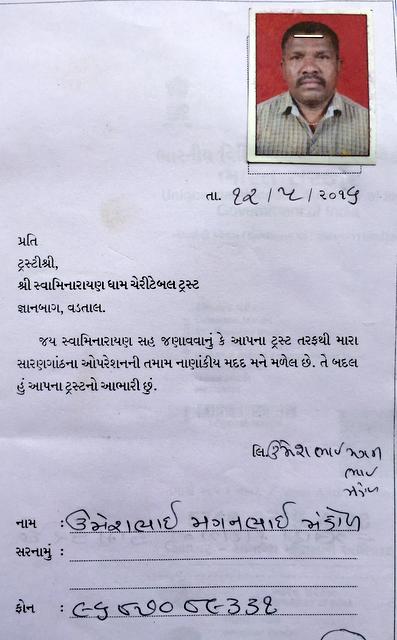 તા. ૧૨/૫/૨૦૧૬
પ્રતિ
ટ્રસ્ટીશ્રી,
શ્રી સ્વામિનારાયણ ધામ ચેરીટેબલ ટ્રસ્ટ
જ્ઞાનબાગ, વડતાલ.
જય સ્વામિનારાયણ સહ જણાવવાનું કે આપના ટ્રસ્ટ તરફથી મારા
સારણગાંઠના ઓપરેશનની તમામ નાણાંકીય મદદ મને મળેલ છે. તે બદલ
હું આપના ટ્રસ્ટનો આભારી છું.
લિ. ઉમેશભાઈ મગન
ભાઈ
નામ : ઉમેશભાઈ મગનભાઈ
સરનામું :
ફોન :